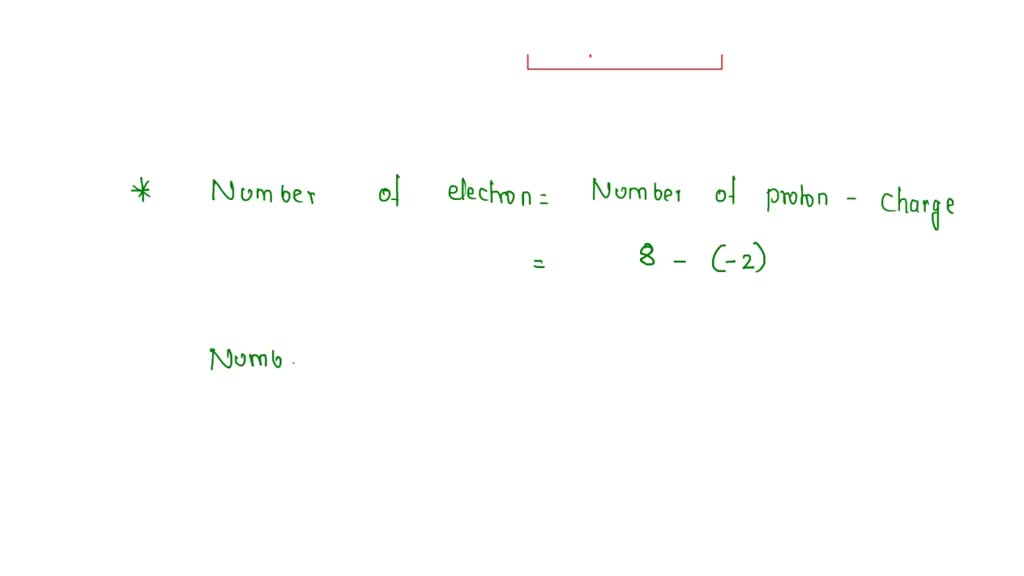 * Number of electron = Number of proton - charge
= 8 - (-2)
Numb